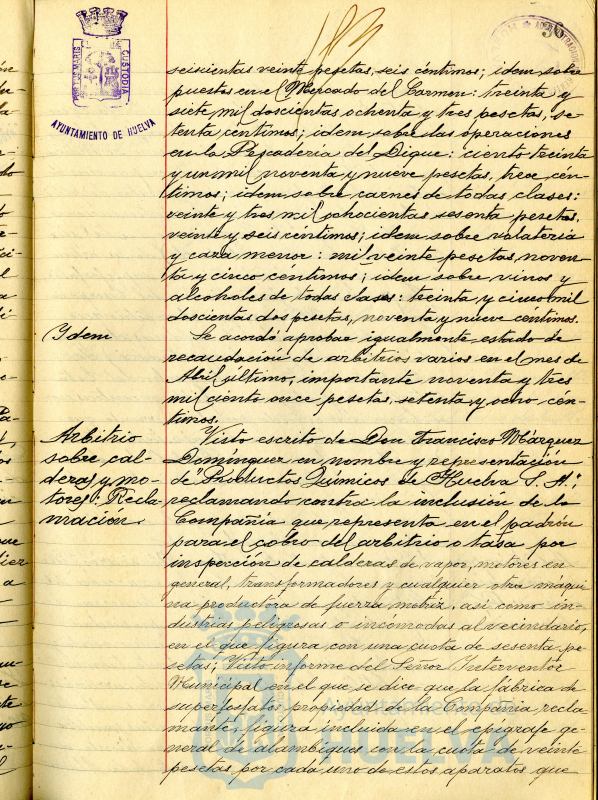 PORTUS MARIS
CUSTODIA
AYUNTAMIENTO DE HUELVA
seiscientas veinte pesetas, seis céntimos; idem sobre
puestos en el Mercado del Carmen: treinta y
siete mil doscientos ochenta y tres pesetas, se-
tenta céntimos; idem sobre las operaciones
en la Pescadería del Dique: ciento treinta
y un mil noventa y nueve pesetas, trece cén-
timos; idem sobre carnes de todas clases:
veinte y tres mil ochocientas sesenta pesetas,
veinte y seis céntimos; idem sobre volatería
y caza menor: mil veinte pesetas, noven-
ta y cinco céntimos; idem sobre vinos y
alcoholes de todas clases: treinta y cinco mil
doscientos dos pesetas, noventa y nueve céntimos.
Idem
Se acordó aprobar igualmente estado de
recaudación de arbitrios varios en el mes de
Abril último, importante noventa y tres
mil ciento once pesetas, setenta y ocho cén-
timos.
Arbitrio
sobre cal-
deras y mo-
tores: Recla-
mación.
Visto escrito de Don Francisco Márquez
Domínguez en nombre y representación
de "Productos Químicos de Huelva S. A.",
reclamando contra la inclusión de la
Compañía que representa en el padrón
para el cobro del arbitrio o tasa por
inspección de calderas de vapor, motores en
general, transformadores y cualquier otra máqui
na productora de fuerza motriz, así como in-
dustrias peligrosas o incomodas al vecindario,
en el que figura con una cuota de sesenta pe-
setas; Visto informe del Señor Interventor
Municipal en el que se dice que la fábrica de
superfosfatos propiedad de la Compañía recla
mante, figura incluida en el epígrafe ge-
neral de alambiques con la cuota de veinte
pesetas por cada uno de estos aparatos que
Ayuntamiento de
HUELVA